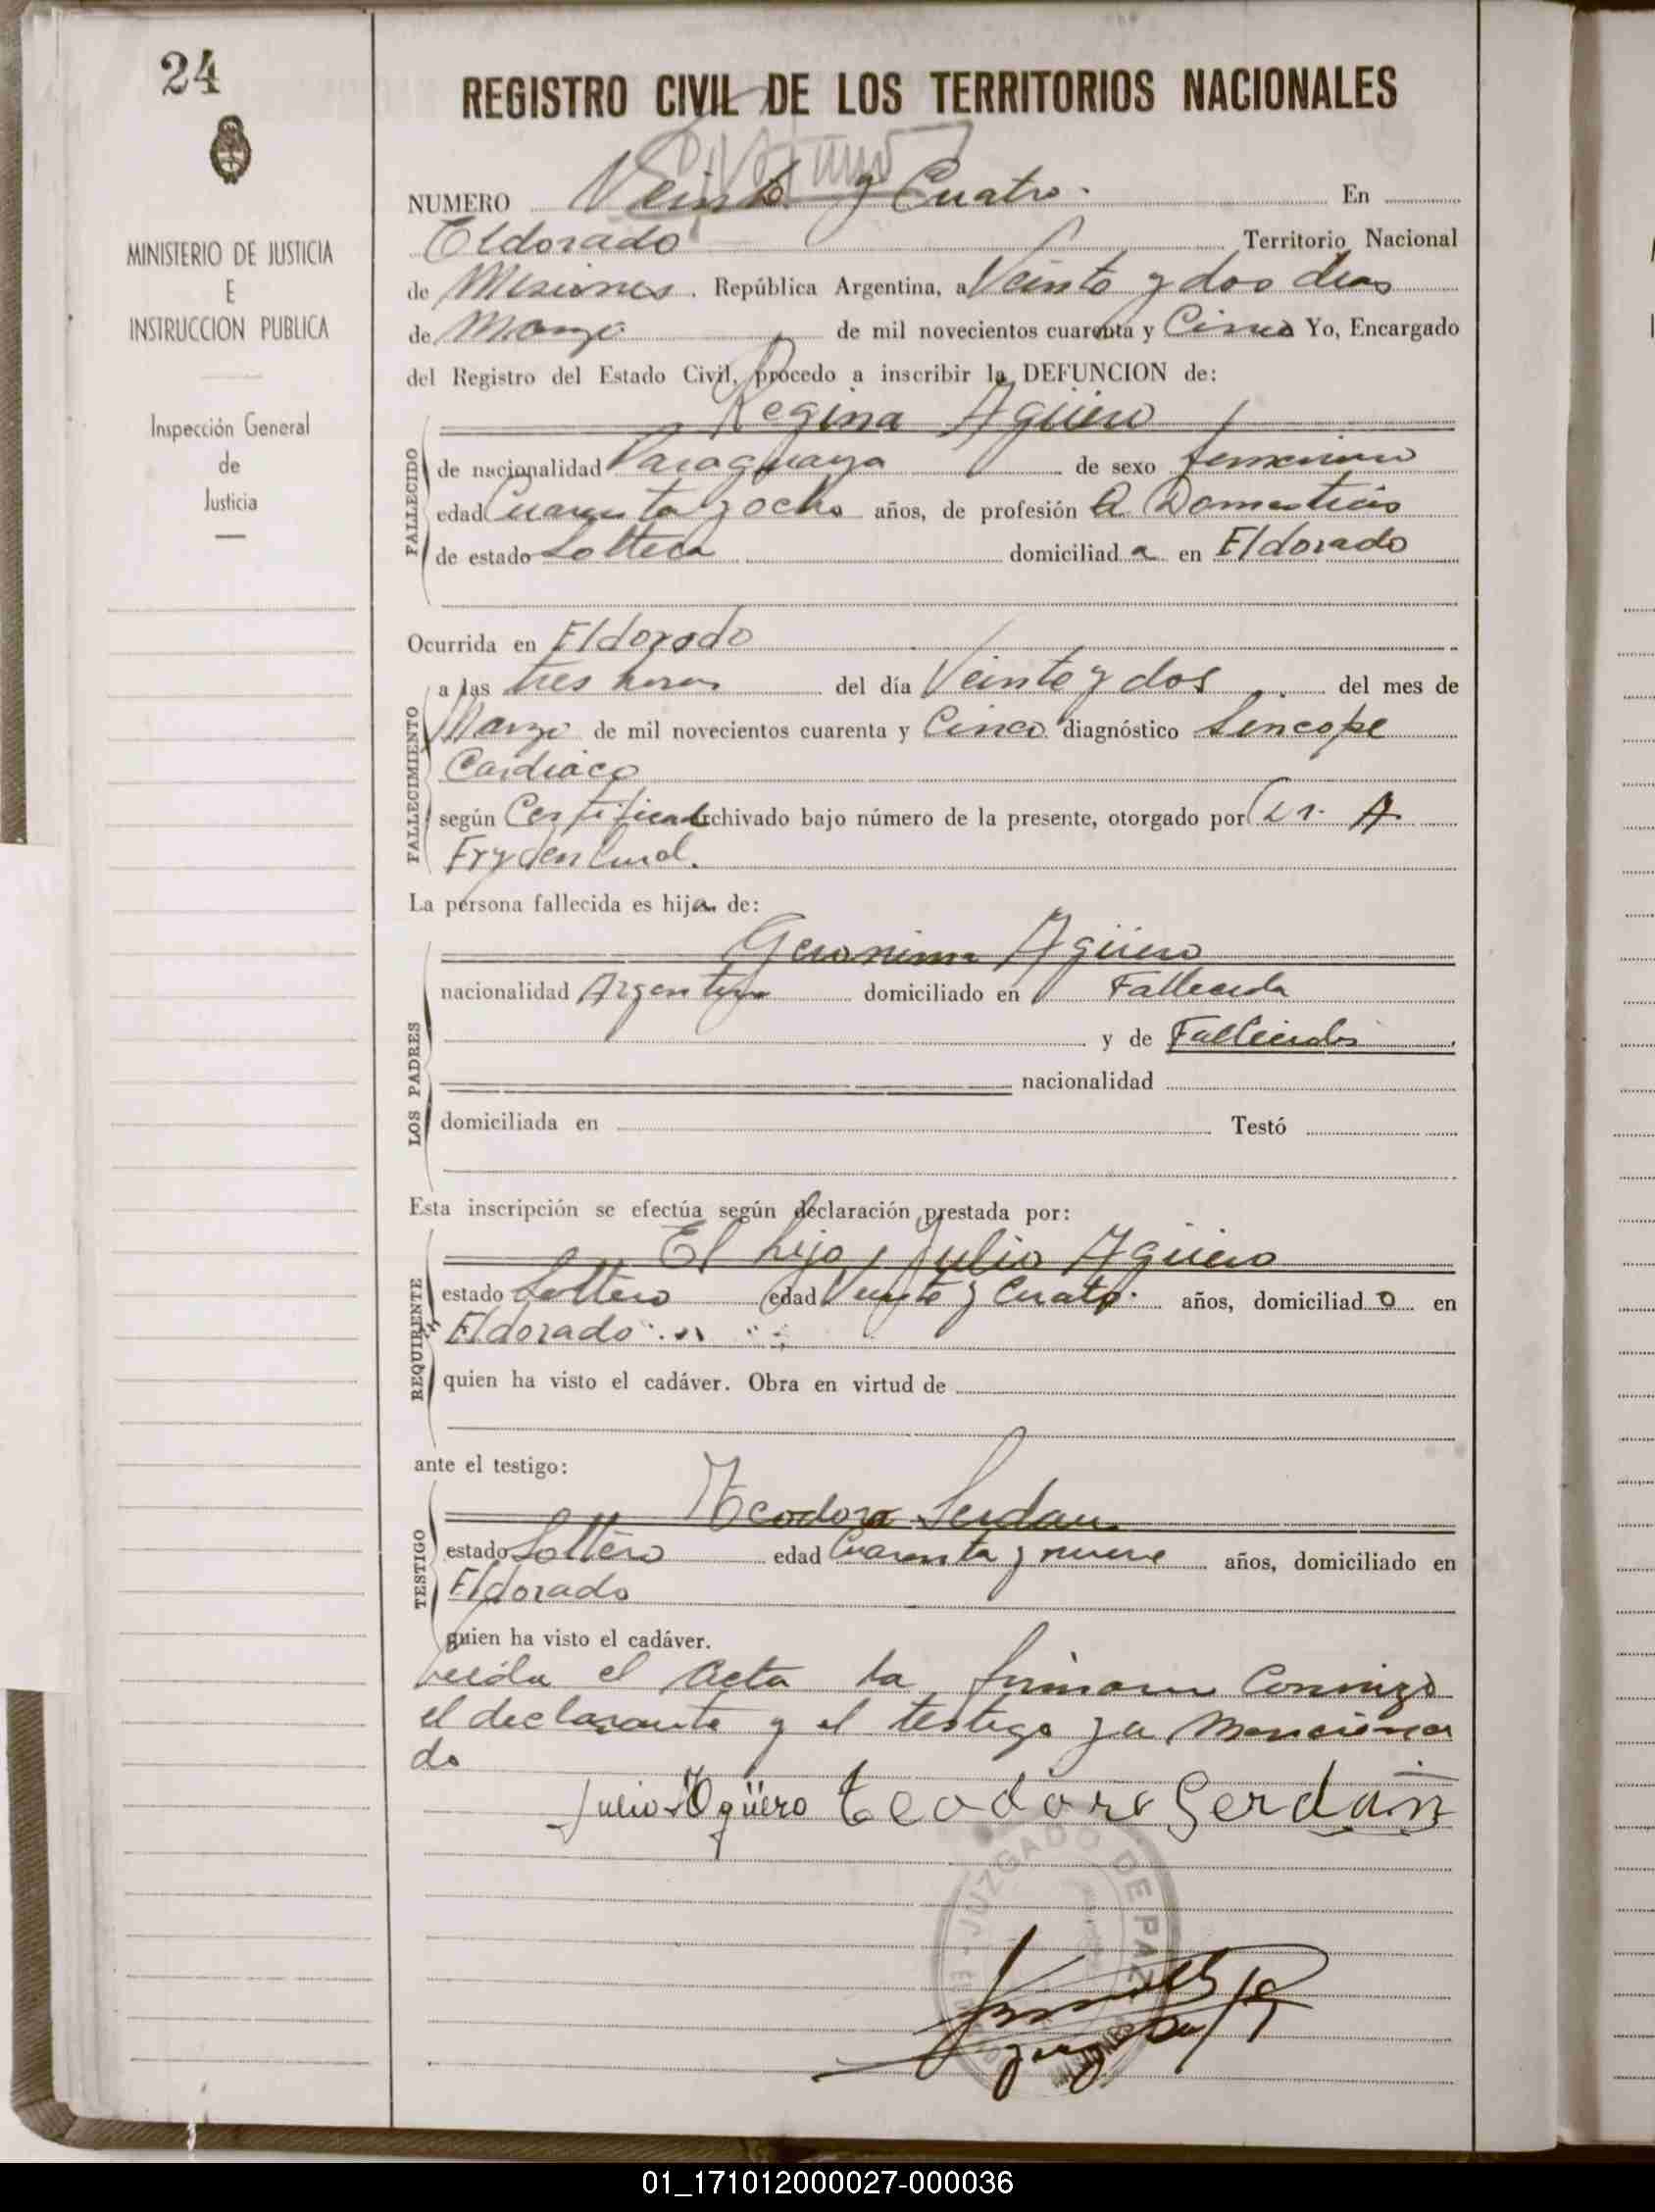 24
MINISTERIO DE JUSTICIA
E
INSTRUCCION PUBLICA
Inspección General
de
Justicia
REGISTRO CIVIL DE LOS TERRITORIOS NACIONALES
NUMERO Veinte y Cuatro. En
Eldorado Territorio Nacional
de Misiones. República Argentina, a Veinte y dos dias
de Marzo de mil novecientos cuarenta y Cinco Yo, Encargado
del Registro del Estado Civil, procedo a inscribir la DEFUNCION de:
Regina Agüero
FALLECIDO
de nacionalidad Paraguaya de sexo femenino
edad Cuarenta y ocho años, de profesión Q. Domesticos
de estado Soltera domiciliada en Eldorado
Ocurrida en Eldorado
FALLECIMIENTO
a las tres horas del día Veinte y dos del mes de
Marzo de mil novecientos cuarenta y Cinco diagnóstico Sincope
Cardiaco
según Certificado archivado bajo número de la presente, otorgado por Dr. A
Frydenlund.
La persona fallecida es hija de:
LOS PADRES
Geronima Agüero
nacionalidad Argentina domiciliado en Fallecida
y de Fallecidos
nacionalidad
domiciliada en Testó
Esta inscripción se efectúa según declaración prestada por:
REQUIRENTE
El hijo, Julio Agüero
estado Soltero edad Veinte y Cuatro. años, domiciliado en
Eldorado
quien ha visto el cadáver. Obra en virtud de
ante el testigo:
TESTIGO
Teodoro Serdan
estado Soltero edad Cuarenta y nueve años, domiciliado en
Eldorado
quien ha visto el cadáver.
Leida el acta la firmaron Conmigo
el declarante y el testigo ya menciona
do
Julio Agüero Teodoro Serdán
JUZGADO DE PAZ
01_171012000027-000036